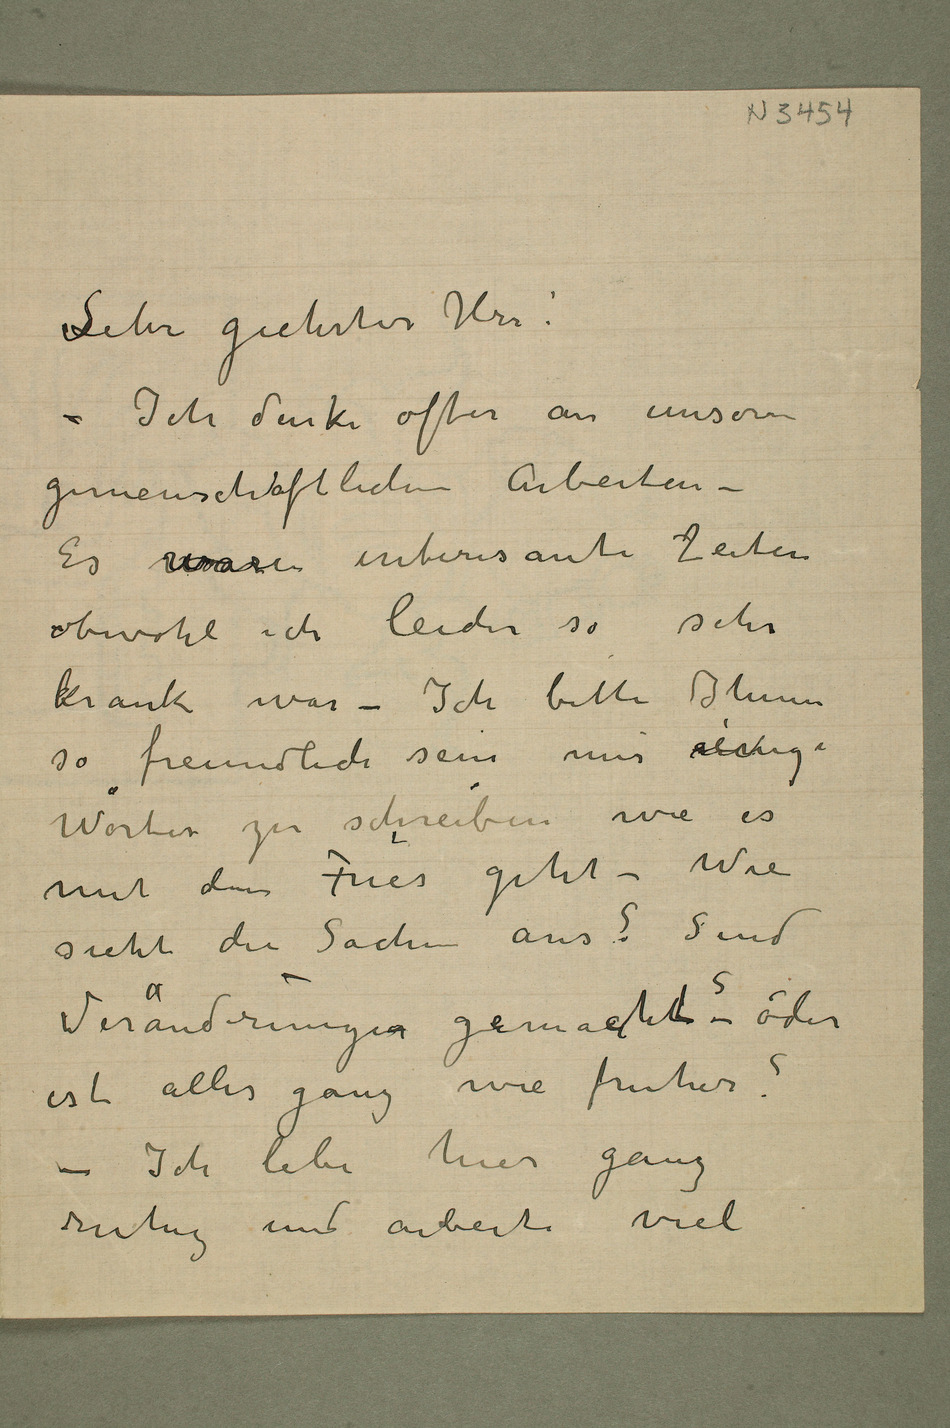 N 3454
Sehr geehrter Herr!
– Ich denke ofter an unseren
gemeinschäftlichen Arbeiten –
Es waren interesante Zeiten
obwohl ich leider so sehr
krank war – Ich bitte Ihnen
so freundlich sein mir einige
Wörter zu schreiben wie es
mit dem Fries geht – Wie
sieht die Sachen aus? Sind
Veränderungen gemacht? – oder
ist alles ganz wie fruher?
– Ich lebe hier ganz
ruhig und arbeite viel